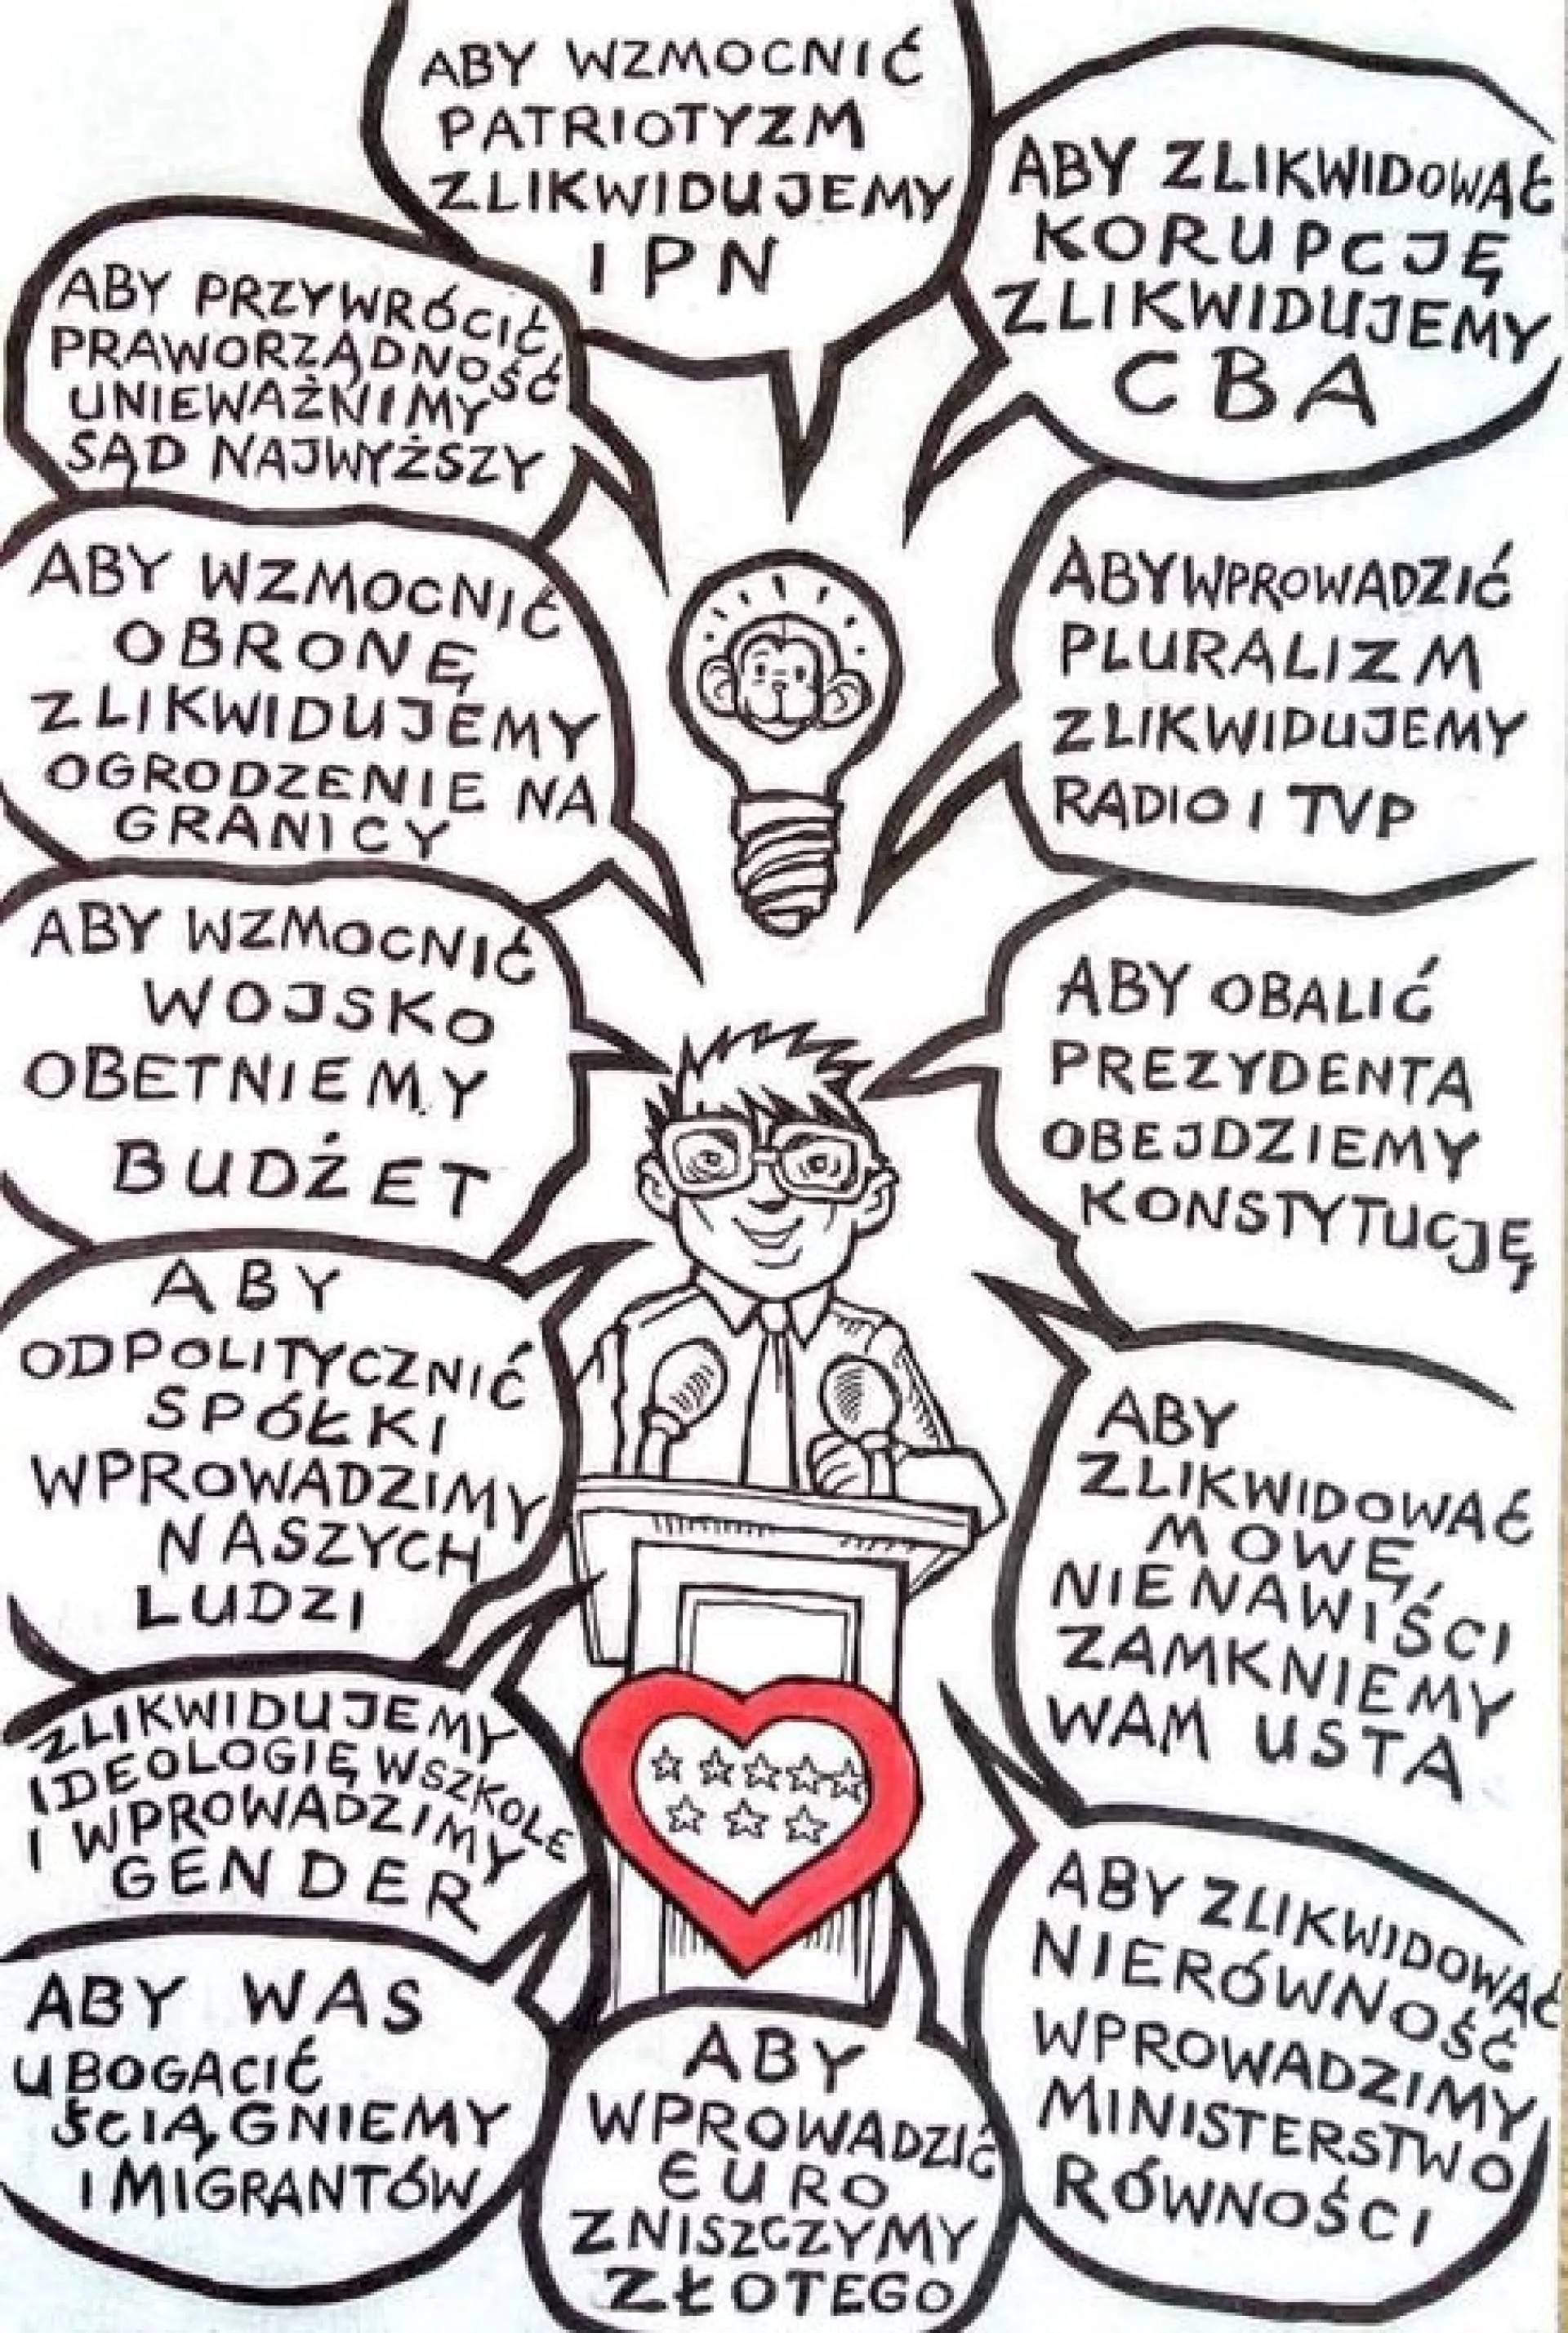 ABY WZMOCNIĆ
PATRIOTYZM
ZLIKWIDUJEMY
IPN
ABY ZLIKWIDOWAĆ
KORUPCJĘ
ZLIKWIDUJEMY
CBA
ABY PRZYWRÓCIĆ
PRAWORZĄDNOŚĆ
UNIEWAŻNIMY
SĄD NAJWYŻSZY
ABY WZMOCNIĆ
OBRONĘ
ZLIKWIDUJEMY
OGRODZENIE NA
GRANICY
ABY WPROWADZIĆ
PLURALIZM
ZLIKWIDUJEMY
RADIO I TVP
ABY WZMOCNIĆ
WOJSKO
OBETNIEMY
BUDŻET
ABY OBALIĆ
PREZYDENTA
OBEJDZIEMY
KONSTYTUCJĘ
ABY
ODPOLITYCZNIĆ
SPÓŁKI
WPROWADZIMY
NASZYCH
LUDZI
ABY
ZLIKWIDOWAĆ
MOWĘ
NIENAWIŚCI
ZAMKNIEMY
WAM USTA
ZLIKWIDUJEMY
IDEOLOGIĘ W SZKOLE
I WPROWADZIMY
GENDER
ABY ZLIKWIDOWAĆ
NIERÓWNOŚĆ
WPROWADZIMY
MINISTERSTWO
RÓWNOŚCI
ABY WAS
UBOGACIĆ
ŚCIĄGNIEMY
IMIGRANTÓW
ABY
WPROWADZIĆ
EURO
ZNISZCZYMY
ZŁOTEGO